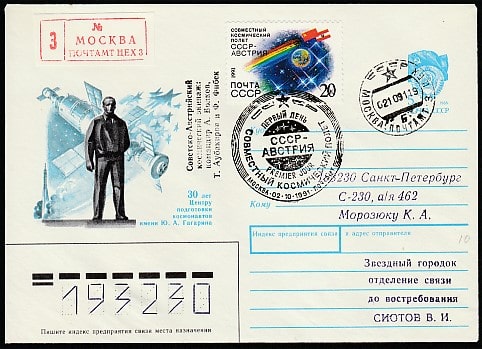 З МОСКВА
ПОЧТАМТ ЦЕХ 3
СОВМЕСТНЫЙ
КОСМИЧЕСКИЙ
ПОЛЕТ
СССР-
АВСТРИЯ
1991
ПОЧТА
СССР 20
МОСКВА-ПОЧТАМТ
0210911
СССР
Советско-Австрийский
космический экипаж:
командир А. Волков,
Т. Аубакиров и Ф. Фибек
ПЕРВЫЙ ДЕНЬ
СССР-
АВСТРИЯ
PREMIER JOUR
СОВМЕСТНЫЙ КОСМИЧЕСКИЙ ПОЛЕТ
МОСКВА-02-10-1991
30 лет
Центру
подготовки
космонавтов
имени Ю. А. Гагарина
230 Санкт-Петербург
Кому С-230, а/я 462
Морозюку К. А.
Индекс предприятия связи и адрес отправителя
10
Звездный городок
отделение связи
до востребования
СИОТОВ В. И.
193230
Пишите индекс предприятия связи места назначения